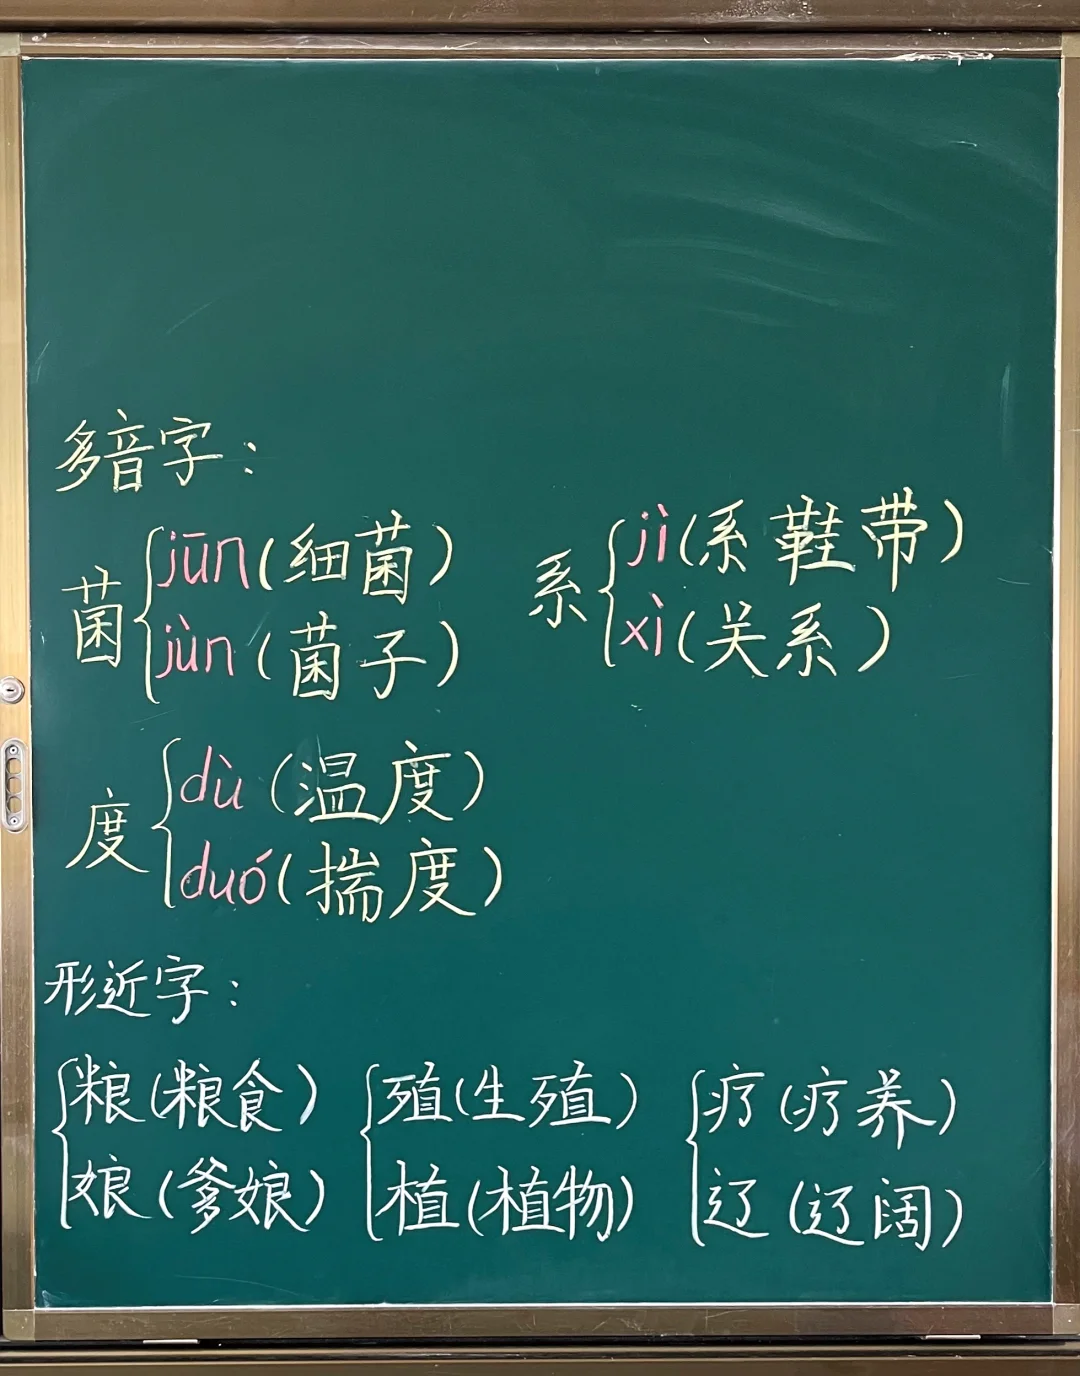 多音字：
菌 jūn（细菌） 系 jì（系鞋带）
jùn（菌子） xì（关系）
度 dù（温度）
duó（揣度）
形近字：
粮（粮食） 殖（生殖） 疗（疗养）
娘（爹娘） 植（植物） 辽（辽阔）